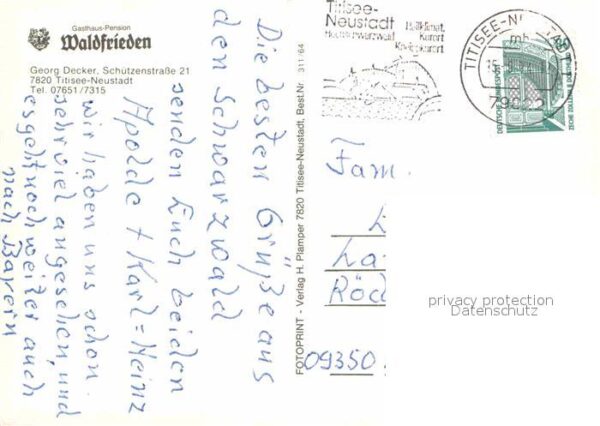 Gasthaus-Pension
Waldfrieden
Georg Decker, Schützenstraße 21
7820 Titisee-Neustadt
Tel. 07651/7315
Die besten Grüße aus
den Schwarzwald
senden Euch beiden
Apolde + Karl=Heinz
wir haben uns schon
sehr viel angesehen, und
es geht noch weiter auch
nach Bayern
FOTOPRINT - Verlag H. Plamper 7820 Titisee-Neustadt, Best.Nr 311 64
Titisee-
Neustadt
Hochschwarzwald
Heilklimat.
Kurort
Kneippkurort
TITISEE-N
mb
79822
DEUTSCHE BUNDESPOST
60
ZECHE ZOLLERN II DORTMUND
Fam.
La
Röd
09350
privacy protection
Datenschutz